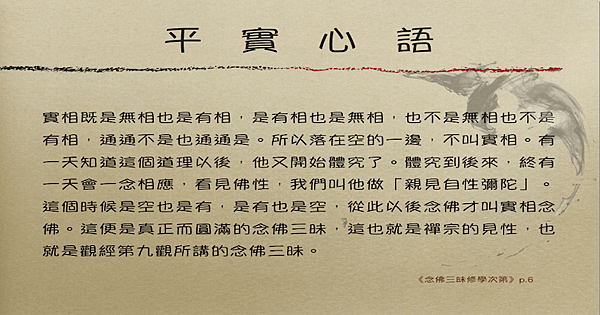 平實心語
實相既是無相也是有相，是有相也是無相，也不是無相也不是
有相，通通不是也通通是。所以落在空的一邊，不叫實相。有
一天知道這個道理以後，他又開始體究了。體究到後來，終有
一天會一念相應，看見佛性，我們叫他做「親見自性彌陀」。
這個時候是空也是有，是有也是空，從此以後念佛才叫實相念
佛。這便是真正而圓滿的念佛三昧，這也就是禪宗的見性，也
就是觀經第九觀所講的念佛三昧。
《念佛三昧修學次第》p.6